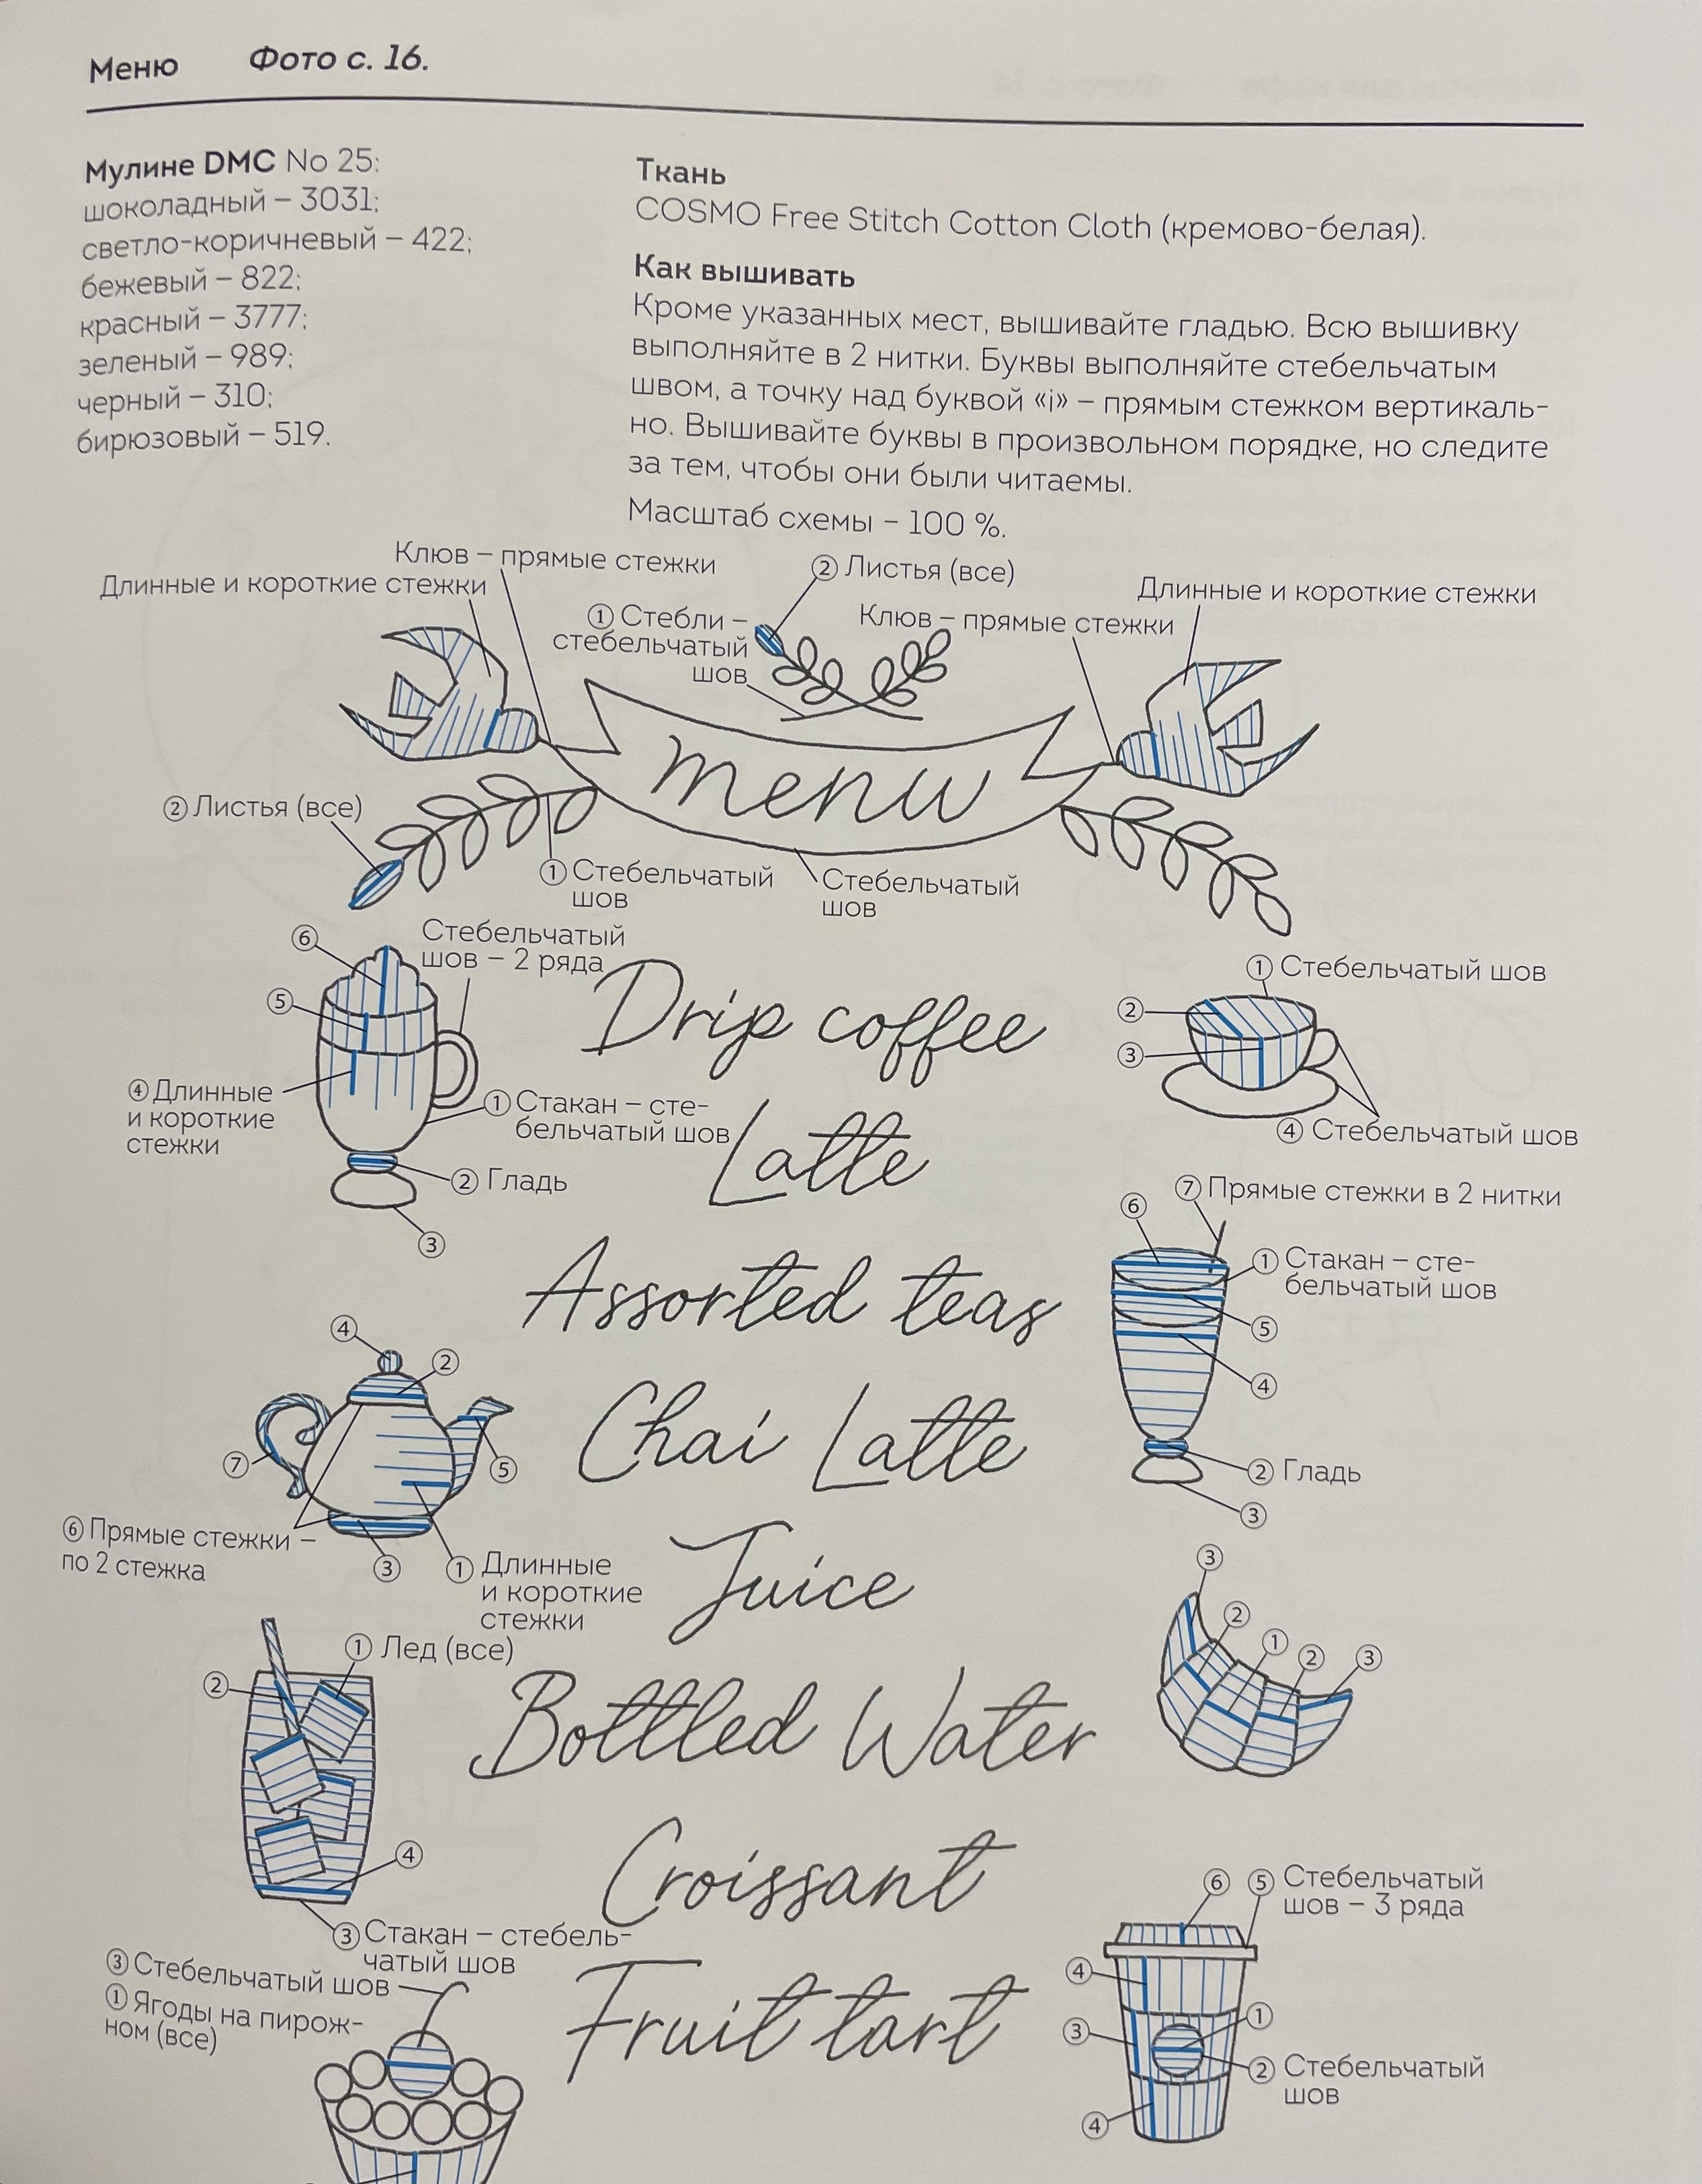 Меню Фото с. 16.
Мулине DMC No 25:
шоколадный – 3031;
светло-коричневый – 422;
бежевый – 822;
красный – 3777;
зеленый – 989;
черный – 310;
бирюзовый – 519.
Ткань
COSMO Free Stitch Cotton Cloth (кремово-белая).
Как вышивать
Кроме указанных мест, вышивайте гладью. Всю вышивку
выполняйте в 2 нитки. Буквы выполняйте стебельчатым
швом, а точку над буквой «i» – прямым стежком вертикаль-
но. Вышивайте буквы в произвольном порядке, но следите
за тем, чтобы они были читаемы.
Масштаб схемы – 100 %.
Клюв – прямые стежки
Длинные и короткие стежки
② Листья (все)
① Стебли –
стебельчатый
шов
Клюв – прямые стежки
Длинные и короткие стежки
menu
② Листья (все)
① Стебельчатый
шов
Стебельчатый
шов
⑥
Стебельчатый
шов – 2 ряда
⑤
④ Длинные
и короткие
стежки
① Стакан – сте-
бельчатый шов
② Гладь
③
Drip coffee
① Стебельчатый шов
②
③
④ Стебельчатый шов
Latte
⑦ Прямые стежки в 2 нитки
⑥
① Стакан – сте-
бельчатый шов
⑤
④
② Гладь
③
Assorted teas
④
②
⑦
⑤
⑥ Прямые стежки –
по 2 стежка
③
① Длинные
и короткие
стежки
Chai Latte
Juice
③
②
①
②
③
① Лед (все)
②
④
③ Стакан – стебель-
чатый шов
Bottled Water
Croissant
⑥
⑤ Стебельчатый
шов – 3 ряда
④
③
①
② Стебельчатый
шов
④
③ Стебельчатый шов
① Ягоды на пирож-
ном (все)
Fruit tart